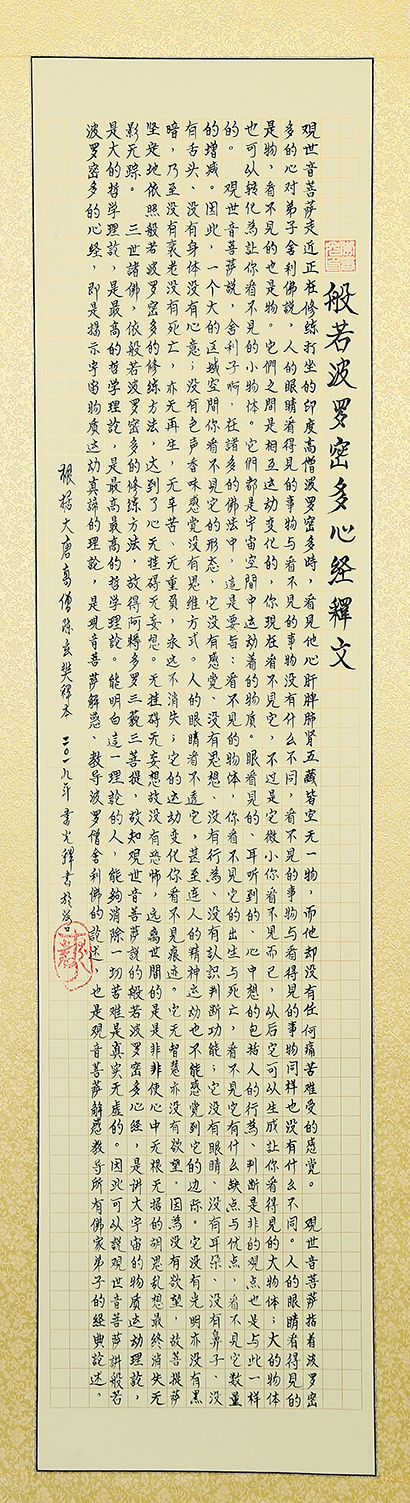 般若波罗密多心经釋文
观世音菩萨走近正在修练打坐的印度高僧波罗密多時，看見他心肝脾肺肾五藏皆空无一物，而他却没有任何痛苦难受的感觉。 观世音菩萨指着波罗密
多的心对弟子舍利佛説，人的眼睛看得見的事物与看不見的事物没有什么不同，看不見的事物与看得見的事物同样也没有什么不同。人的眼睛看得見的
是物，看不見的也是物。它們之間是相互运动变化的，你現在看不見它，不过是它微小你看不見而已，以后它可以生成让你看得見的大物体；大的物体
也可以轉化為让你看不見的小物体。它們都是宇宙空間中运动着的物质。眼看見的、耳听到的、心中想的包括人的行為、判断是非的观点也是与此一样
的。 观世音菩萨説，舍利子啊，在諸多的佛法中，這是要旨：看不見的物体，你看不見它的出生与死亡，看不見它有什么缺点与优点，看不見它数量
的增减。因此，一个大的区域空間你看不見它的形态，它没有感觉、没有思想、没有行為、没有认識判断功能；它没有眼睛、没有耳朵、没有鼻子、没
有舌头、没有身体没有心意；没有色声香味感觉没有思维方式。人的眼睛看不透它，甚至连人的精神运动也不能感觉到它的边际。它没有光明亦没有黑
暗，乃至没有衰老没有死亡，亦无再生，无辛苦、无重负，永远不消失；它的运动变化你看不見痕迹。它无智慧亦没有欲望，因為没有欲望，故菩提萨
坚定地依照般若波罗密多的修练方法，达到了心无挂碍无妄想。无挂碍无妄想故没有恐怖，远离世間的是是非非使心中无根无据的胡思乱想最终消失无
影无踪。 三世諸佛，依般若波罗密多的修练方法，故得阿耨多罗三藐三菩提，故知观世音菩萨説的般若波罗密多心经，是讲大宇宙的物质运动理论，
是大的哲学理論，是最高的哲学理論，是最高最高的哲学理論。能明白這一理論的人，能夠消除一切苦难是真实无虚的。因此可以説观世音菩萨讲般若
波罗密多的心经，即是揭示宇宙物质运动真諦的理論，是观音菩萨解惑、教导波罗僧舍利佛的論述，也是观音菩萨解惑教导所有佛家弟子的经典論述。
根据大唐高僧陈玄奘释本 二〇一九年 書光释書於